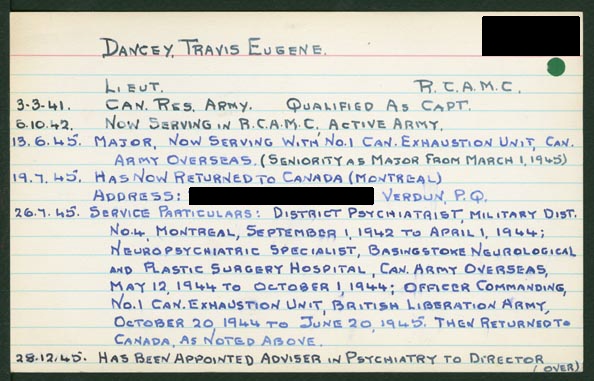 DANCEY, TRAVIS EUGENE.
LIEUT. R.C.A.M.C.
3-3-41. CAN. RES. ARMY. QUALIFIED AS CAPT.
6.10.42. NOW SERVING IN R.C.A.M.C, ACTIVE ARMY.
13.6.45. MAJOR, NOW SERVING WITH NO.1 CAN. EXHAUSTION UNIT, CAN.
ARMY OVERSEAS. (SENIORITY AS MAJOR FROM MARCH 1, 1945)
19.7.45. HAS NOW RETURNED TO CANADA (MONTREAL)
ADDRESS: VERDUN, P.Q.
26.7.45. SERVICE PARTICULARS: DISTRICT PSYCHIATRIST, MILITARY DIST.
NO.4, MONTREAL, SEPTEMBER 1, 1942 TO APRIL 1, 1944;
NEUROPSYCHIATRIC SPECIALIST, BASINGSTOKE NEUROLOGICAL
AND PLASTIC SURGERY HOSPITAL, CAN. ARMY OVERSEAS,
MAY 12, 1944 TO OCTOBER 1, 1944; OFFICER COMMANDING,
NO.1 CAN. EXHAUSTION UNIT, BRITISH LIBERATION ARMY,
OCTOBER 20, 1944 TO JUNE 20, 1945. THEN RETURNED TO
CANADA, AS NOTED ABOVE.
28.12.45. HAS BEEN APPOINTED ADVISER IN PSYCHIATRY TO DIRECTOR
(OVER)